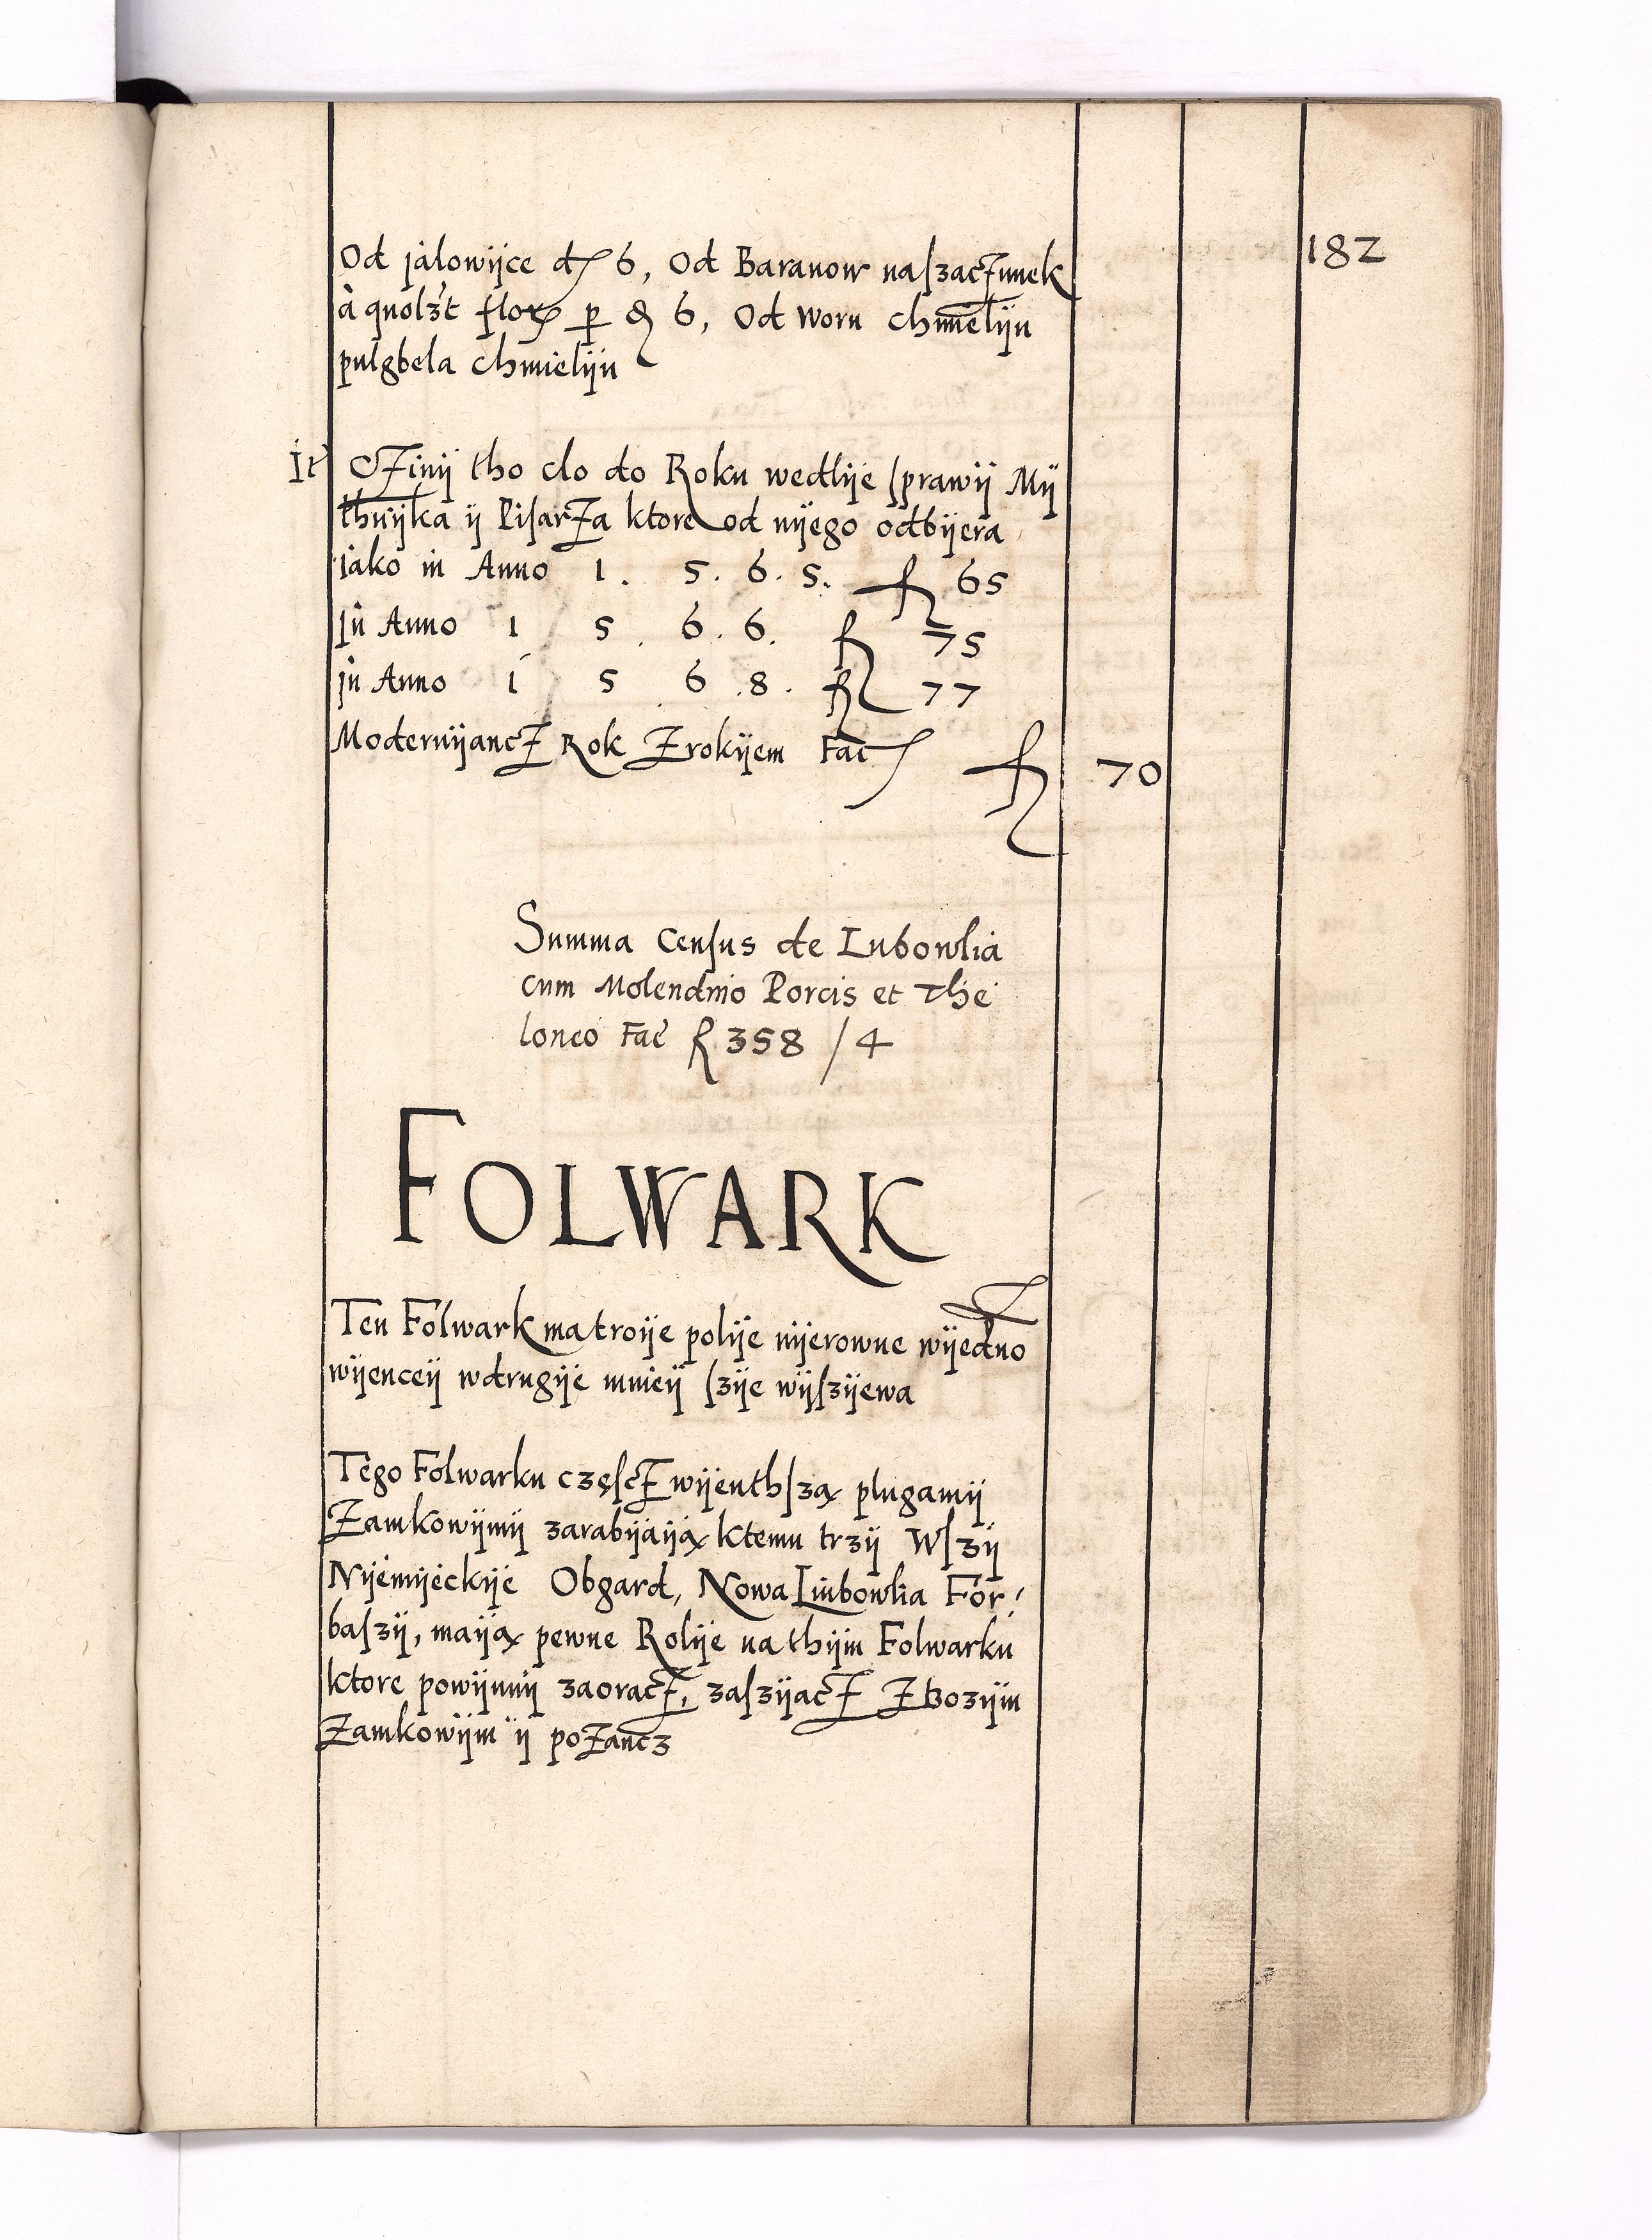 182
Od jalowijce d 6, Od Baranow naſzacżunek
à quolzt flor per d 6, Od woru chmielijn
pulgbela chmielijn
It Cżinij tho clo do Roku wedlije ſprawij Mij
thnijka ij Piſarża ktore od nijego odbijera
jako in Anno 1. 5. 6. 5. fl 65
jn Anno 1 5. 6. 6. fl 75
jn Anno 1 5 6.8. fl 77
Modernijancż Rok żrokijem Fac fl 70
Summa Cenſus de Lubowlia
cum Molendino Porcis et The
loneo Fac fl 358 / 4
FOLWARK
Ten Folwark ma troije polije nijerowne wijedno
wijenceij wdrugije mnieij ſzije wijſzijewa
Tego Folwarku częſcż wijenthſzą plugamij
Zamkowijmij zarabijaiją ktemu trzij Wſzij
Nijemijeckije Obgard, Nowa Liubowlia For
baſzij, maiją pewne Rolije na thijm Folwarku
ktore powijnnij zaoracż, zaſzijacż Zbozijm
Zamkowijm ij pożancz